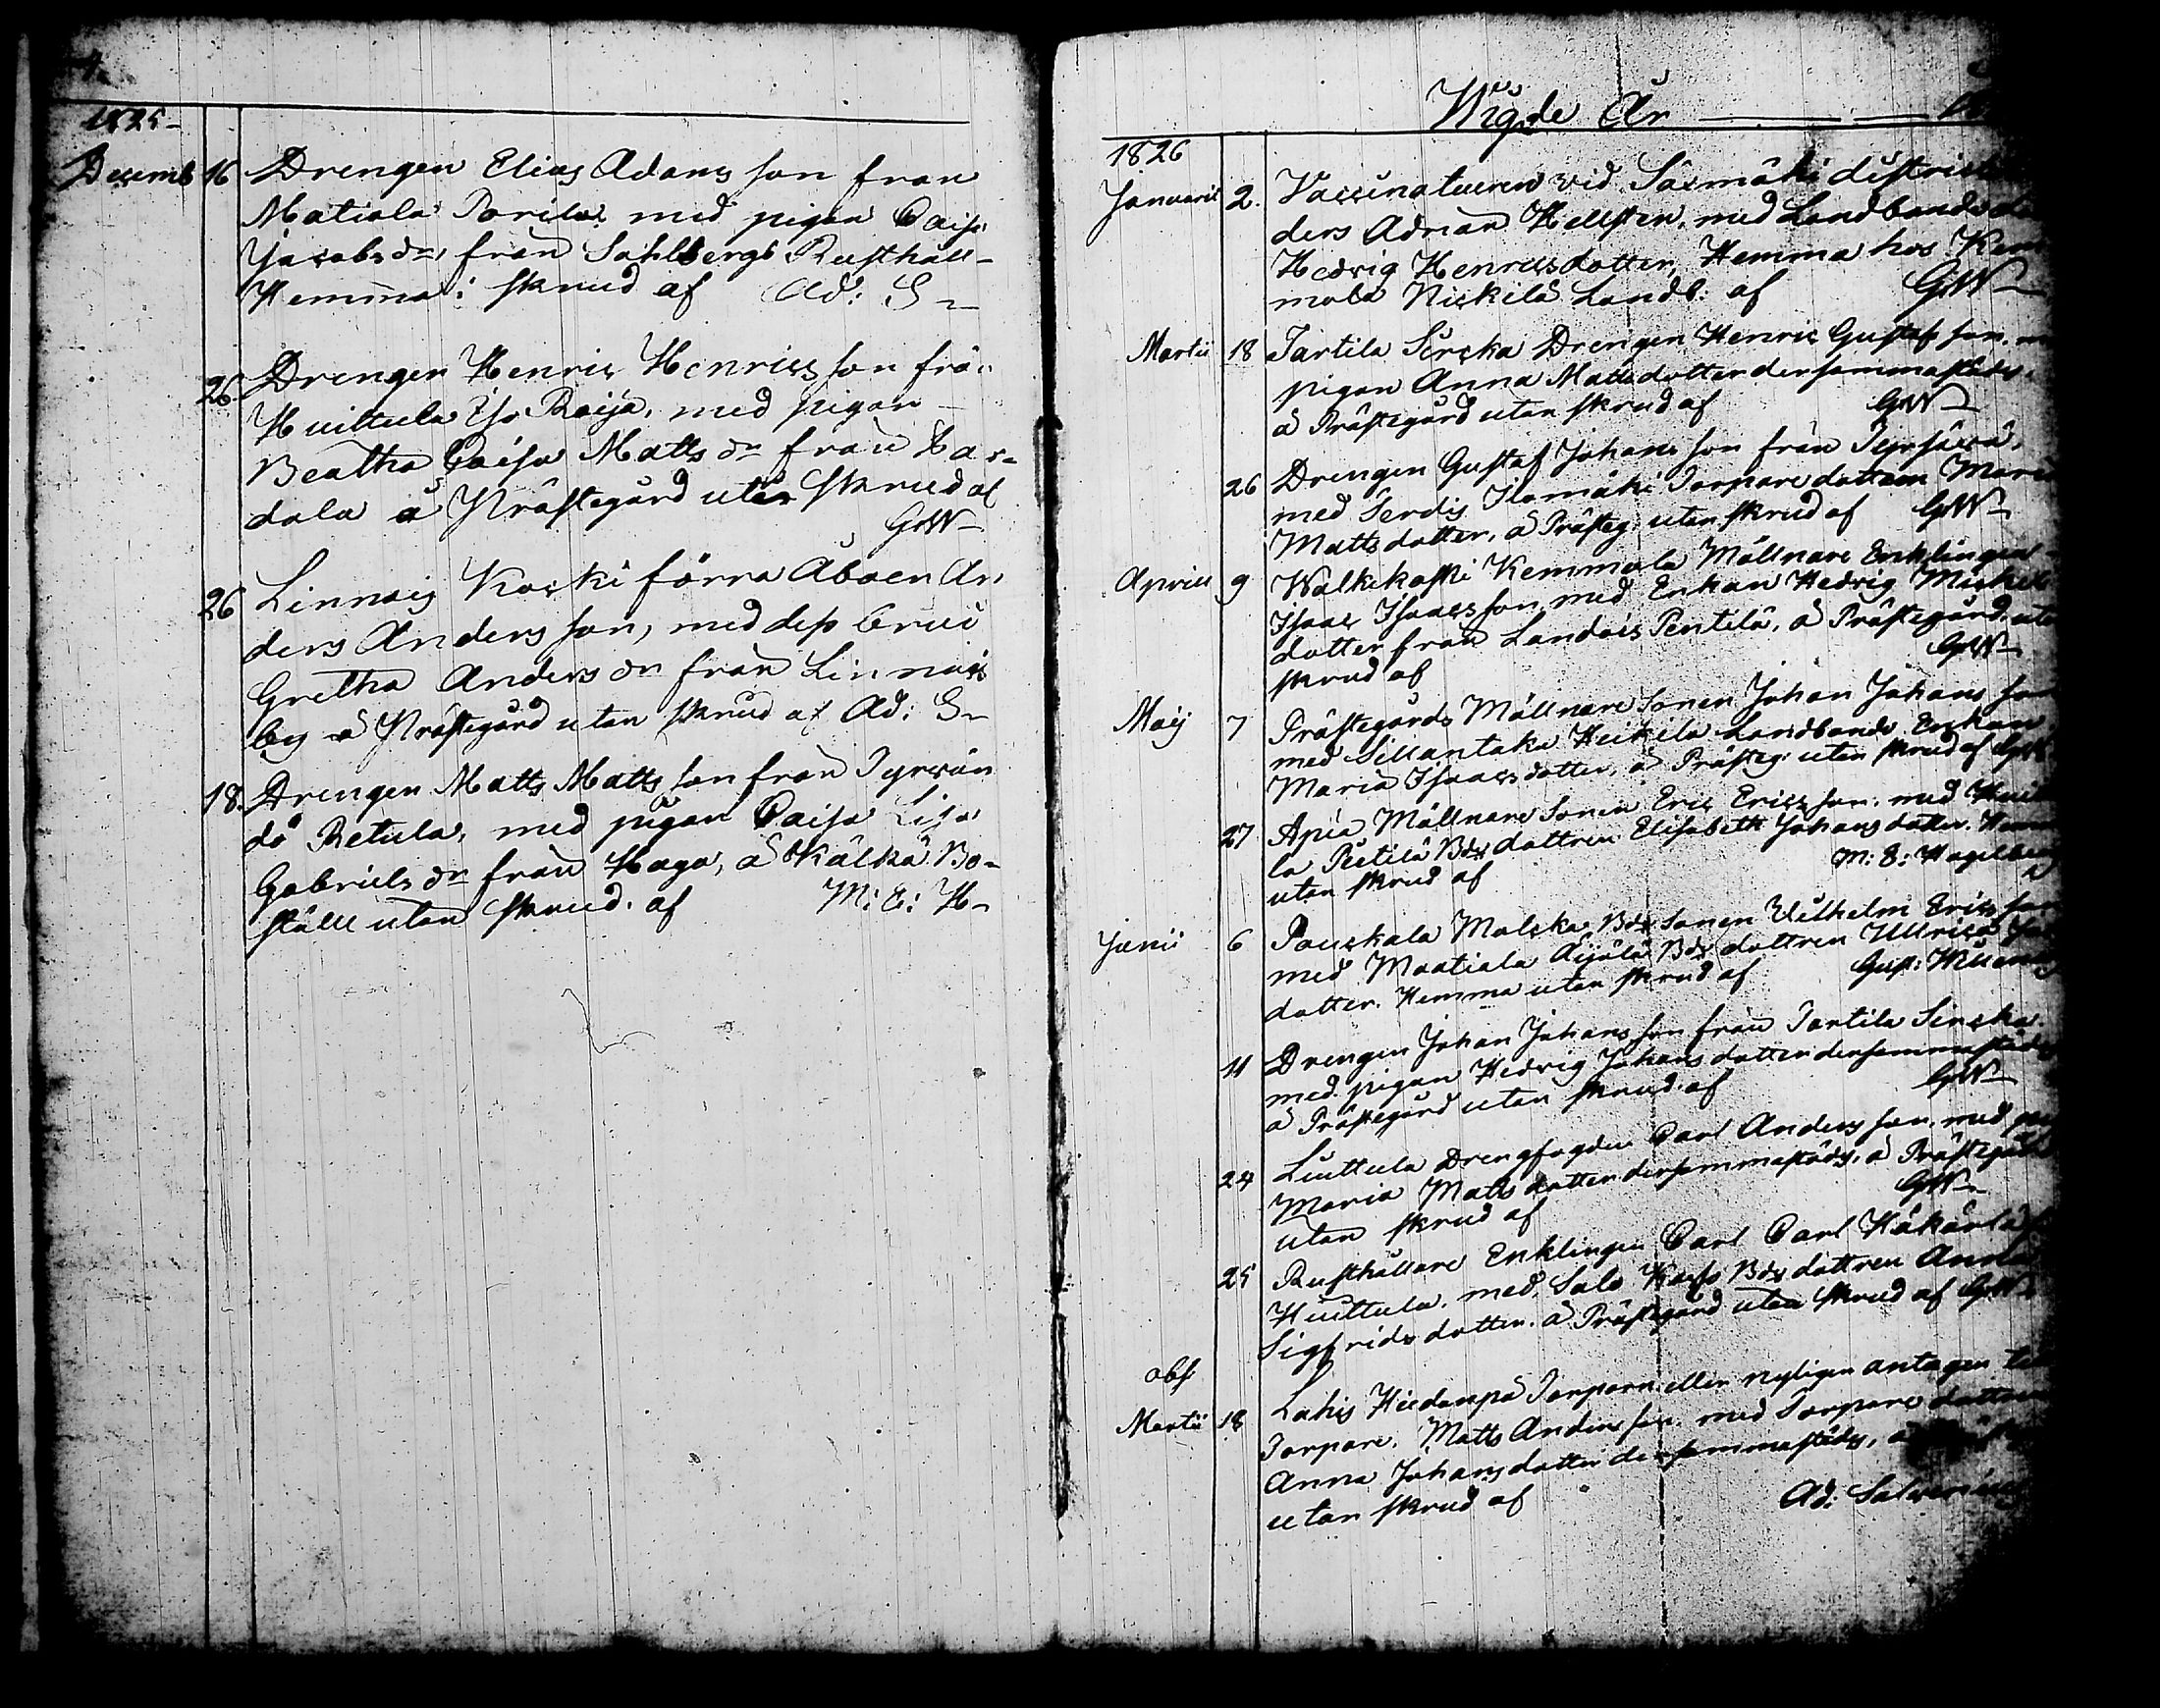 4.
1825-
Decemb 16 Drengen Elias Adams son från
Matiala Parila, med pigan Caisa
Jacobs dr, från Sahlbergs Rusthåll-
Hemma i skrud af Ad: S-
26 Drengen Henric Henrics son från
Huittula Iso Raija, med pigan
Beatha Caisa Matts dr från Kar-
dala å Prästegård utan skrud af
GW-
26 Linnais Koski förra Åboen An
ders Anders son, med dess brud
Gretha Anders dr från Linnais
by å Prästegård utan skrud af Ad: S-
18. Drengen Matts Matts son från Tyrvän
dö Retula, med pigan Caisa Lisa
Gabriels dr från Haga, å Kälkä Bo-
ställe utan skrud. af M: E: H-
Wigde År
1826
Januarii 2. Vaccinateuren vid Säxmäki district
ders Adrian Hellsten, med Landbonde
Hedvig Henricsdotter, Hemma hos Kem
mola Nickilä Landb: af GW-
Martii 18 Tartila Sirska Drengen Henric Gustaf son.
pigan Anna Mattsdotter dersammastäds,
å Prästegård utan skrud af GW-
26 Drengen Gustaf Johans son från
med Serdis Ilomäki Torpare dottren Maria
Mattsdotter, å Präteg: utan skrud af GW-
Aprill 9 Walkikoski Kemmola Möllnare Enklingen
Isaac Isaacs son, med Enkan Hedvig Mickels
dotter från Landois Pentilä, å Prästegård, utan
skrud af GW-
Maij 7 Prästegårds Möllnare Sonen Johan Johans son
med Sillantaka Heikilä Landbonde Enkan
Maria Isaacsdotter, å Präteg: utan skrud af GW
27 Apia Möllnare Sonen Eric Erics son. med
la Pietilä Bds dottren Elisabeth Johans dotter.
utan skrud af M: E: Hagelberg
Junii 6 Pauskala Malska Bds Sonen Wilhelm Erics son
med Maatiala Äijälä Bds dottren Ullrica
dotter. Hemma utan skrud af Gust:
11 Drengen Johan Johans son från Tartila Sirska.
med pigan Hedvig Johans dotter dersammastädes
å Prästegård utan skrud. af GW-
24 Liuttula Drengfogden Carl Anders son. med
Maria Matts dotter dersammastäds, å Prästegård
utan skrud af GW-
25 Rusthållare Enklingen Carl Carl Häkärlä
Huittula. med Salo Bds dottren Anna
Sigfrids dotter. å Prästegård utan skrud af GW-
obs
Martii 18 Lahis Hiedanpä Torparn eller nyligen antagen
Torpare, Matts Anders son. med Torpare dottren
Anna Johans dotter dersammastäds, å
utan skrud af Ad: Salvenius